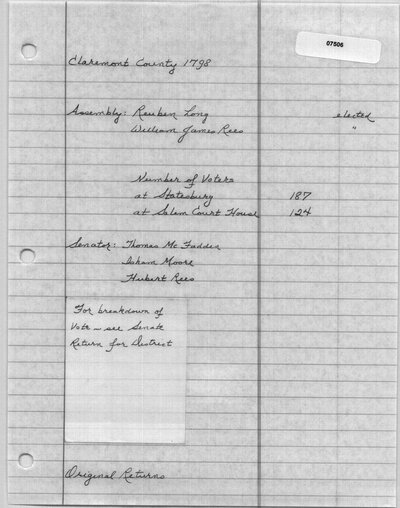 07506
Claremont County 1798
Assembly: Reuben Long elected
William James Rees "
Number of Voters
at Statesburg 187
at Salem Court House 124
Senator: Thomas McFadden
Isham Moore
Hubert Rees
For breakdown of
Vote - see Senate
Return for District
Original Returns